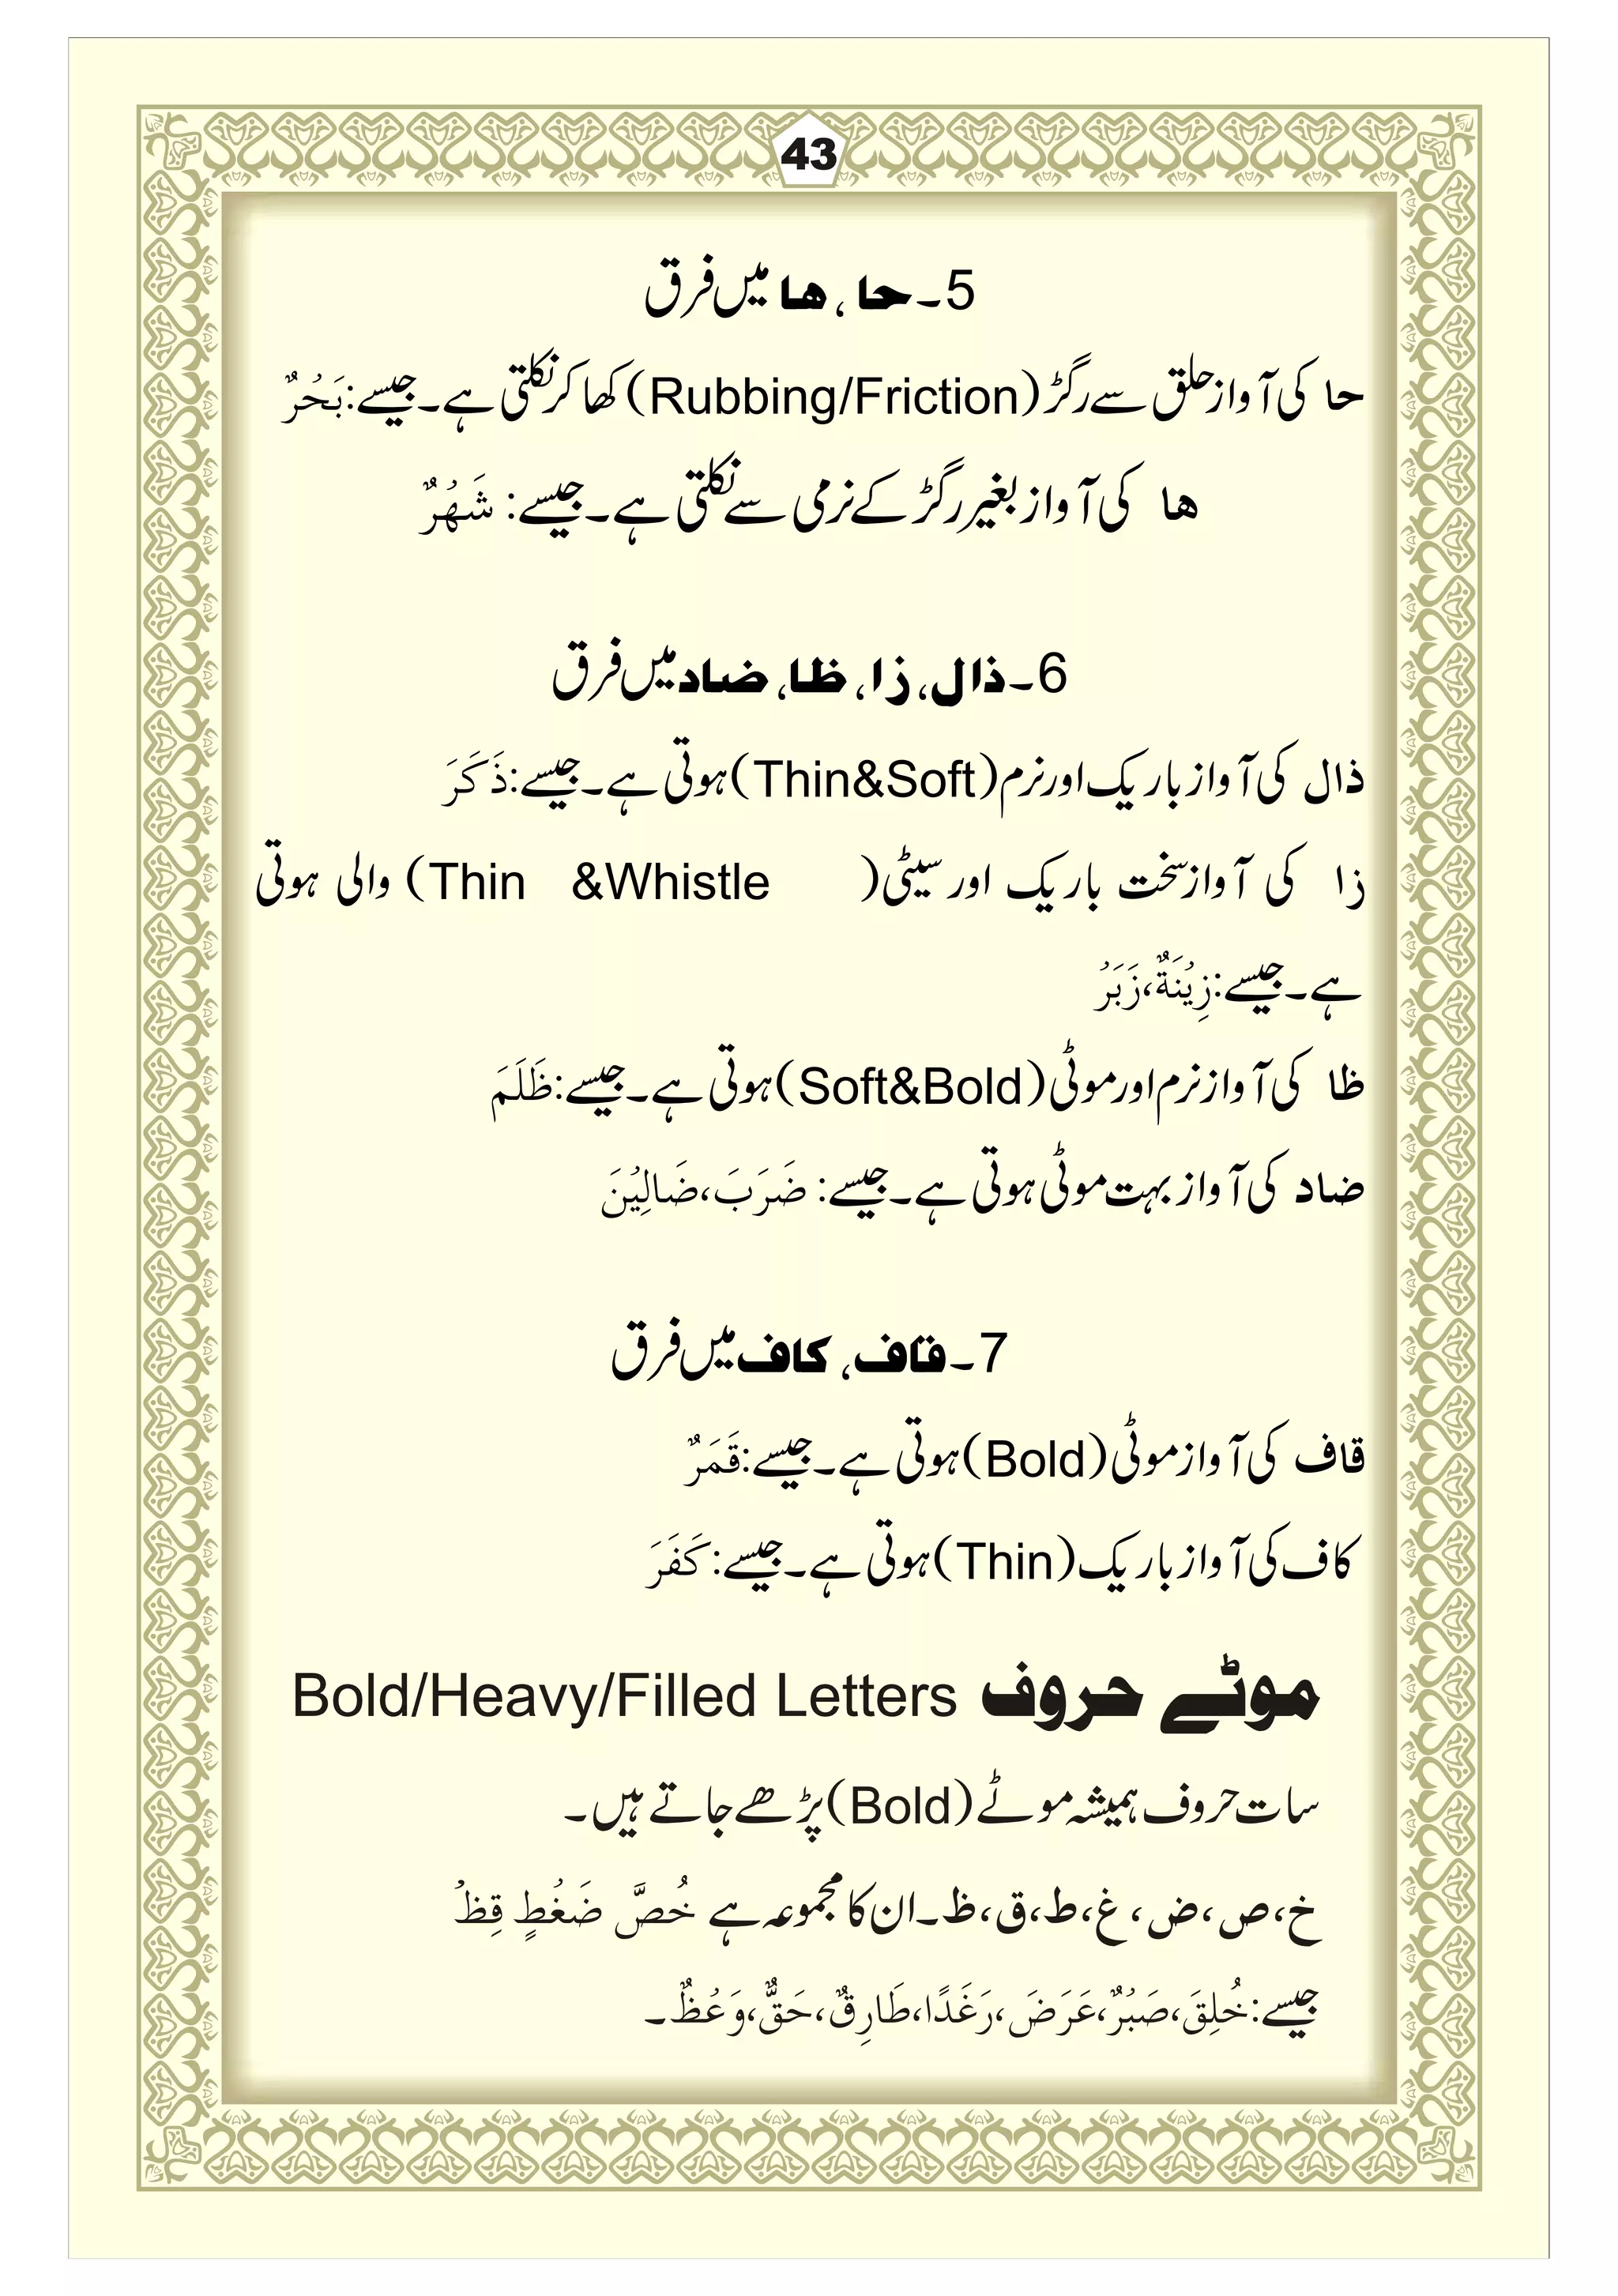 43
5۔حا، ھا میں فرق
حا کی آواز حلق سے رگڑ (Rubbing/Friction) کھا کر نکلتی ہے۔ جیسے: بَحُرٌ
ھا کی آواز بغیر رگڑ کے نرمی سے نکلتی ہے۔ جیسے: شَهُرٌ
6۔ذال، زا، ظا، ضاد میں فرق
ذال کی آواز باریک اور نرم (Thin&Soft) ہوتی ہے۔ جیسے: ذَکَرَ
زا کی آواز سخت باریک اور سیٹی (Thin &Whistle) والی ہوتی
ہے۔ جیسے: زِيُنَةٌ، زَبَرُ
ظا کی آواز نرم اور موٹی (Soft&Bold) ہوتی ہے۔ جیسے: ظَلَمَ
ضاد کی آواز بہت موٹی ہوتی ہے۔ جیسے: ضَرَبَ، ضَالِيُنَ
7۔قاف، کاف میں فرق
قاف کی آواز موٹی (Bold) ہوتی ہے۔ جیسے: قَمَرٌ
کاف کی آواز باریک (Thin) ہوتی ہے۔ جیسے: کَفَرَ
موٹے حروف Bold/Heavy/Filled Letters
سات حروف ہمیشہ موٹے (Bold) پڑھے جاتے ہیں۔
خ، ص، ض، غ، ط، ق، ظ۔ ان کا مجموعہ ہے خُصَّ ضَغُطٍ قِظُ
جیسے: خُلِقَ، صَبُرٌ، عَرَضَ، رَغَدًا، طَارِقٌ، حَقٌّ، وَعُظٌ۔